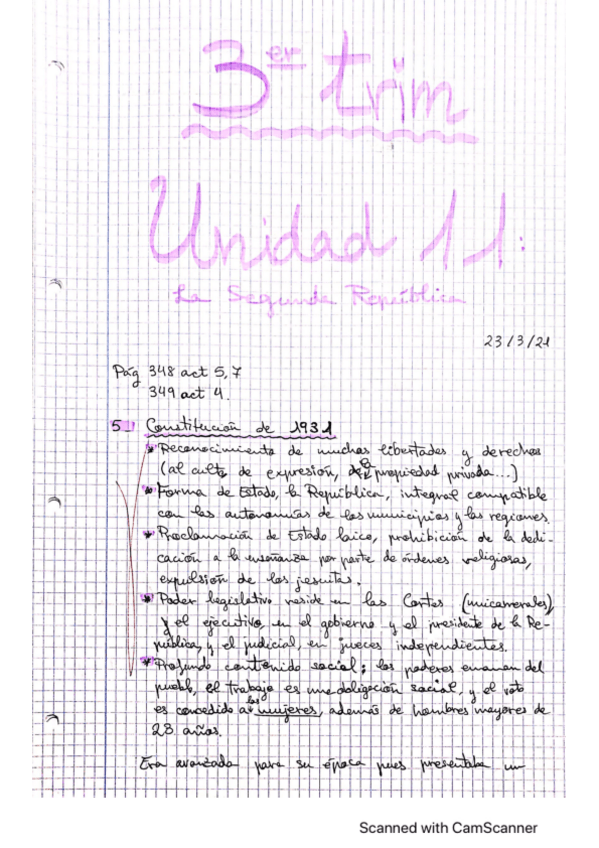 3er trim
Unidad 11:
La Segunda República
23/3/21
Pág 348 act 5,7
349 act 4.
5_| Constitución de 1931
* Reconocimiento de muchas libertades y derechos
(al culto, de expresión, de la propiedad privada...)
* Forma de Estado, la República, integral compatible
con las autonomías de los municipios y las regiones.
* Proclamación de Estado laico, prohibición de la dedi-
cación a la enseñanza por parte de órdenes religiosas,
expulsión de los jesuitas.
* Poder legislativo reside en las Cortes (unicamerales)
y el ejecutivo, en el gobierno y el presidente de la Re-
pública, y el judicial, en jueces independientes.
* Profundo contenido social; los poderes emanan del
pueblo, el trabajo es una obligación social, y el voto
es concedido a las mujeres, además de hombres mayores de
23 años.
Era avanzada para su época pues presentaba un
Scanned with CamScanner